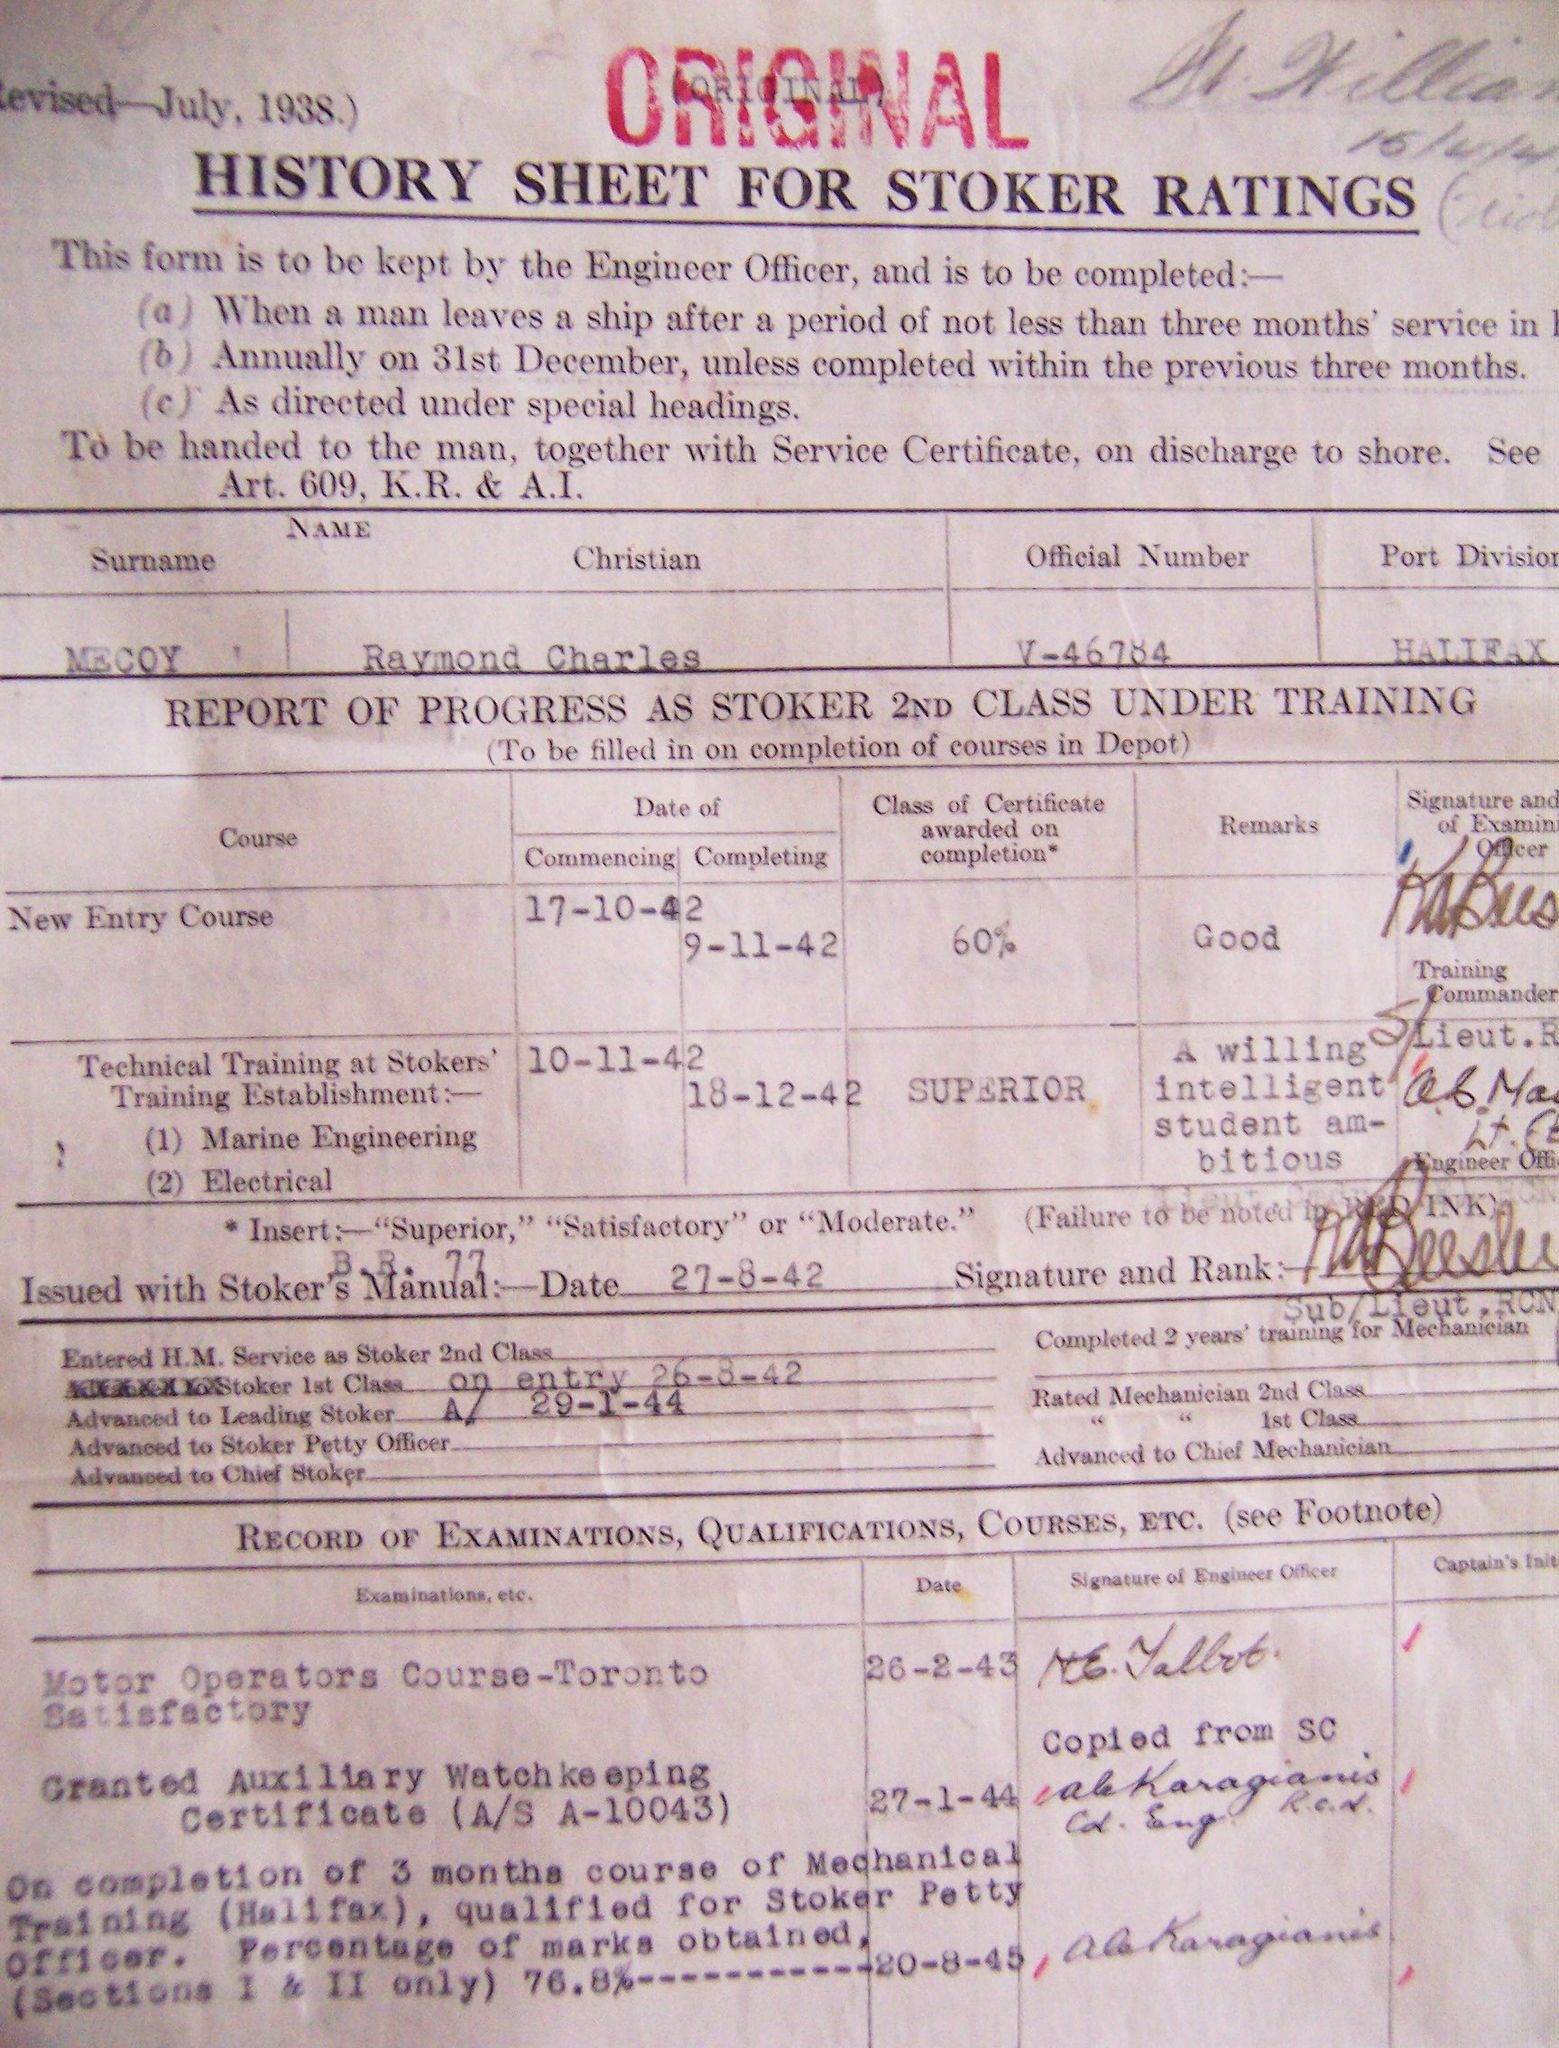 Revised—July, 1938.)
ORIGINAL
(ORIGINAL)
HISTORY SHEET FOR STOKER RATINGS
This form is to be kept by the Engineer Officer, and is to be completed:—
(a) When a man leaves a ship after a period of not less than three months' service in
(b) Annually on 31st December, unless completed within the previous three months.
(c) As directed under special headings.
To be handed to the man, together with Service Certificate, on discharge to shore. See
Art. 609, K.R. & A.I.
NAME
Surname Christian Official Number Port Division
MECOY Raymond Charles V-46784 HALIFAX
REPORT OF PROGRESS AS STOKER 2ND CLASS UNDER TRAINING
(To be filled in on completion of courses in Depot)
Course
Date of
Commencing Completing
Class of Certificate
awarded on
completion*
Remarks
Signature and
of Examini
Officer
New Entry Course 17-10-42
9-11-42 60% Good
Training
Commander
S/Lieut.R
Technical Training at Stokers'
Training Establishment:—
(1) Marine Engineering
(2) Electrical
10-11-42
18-12-42
SUPERIOR
A willing
intelligent
student am-
bitious
Lt. (E
Engineer Offi
* Insert:—"Superior," "Satisfactory" or "Moderate." (Failure to be noted in RED INK)
B.R. 77
Issued with Stoker's Manual:—Date 27-8-42 Signature and Rank:—
Sub/Lieut.RCN
Entered H.M. Service as Stoker 2nd Class
Stoker 1st Class on entry 26-8-42
Advanced to Leading Stoker A/ 29-1-44
Advanced to Stoker Petty Officer
Advanced to Chief Stoker
Completed 2 years' training for Mechanician
Rated Mechanician 2nd Class
" " 1st Class
Advanced to Chief Mechanician
RECORD OF EXAMINATIONS, QUALIFICATIONS, COURSES, ETC. (see Footnote)
Examinations, etc. Date Signature of Engineer Officer Captain's Init
Motor Operators Course-Toronto 26-2-43 H.E. Talbot.
Satisfactory
Copied from SC
Granted Auxiliary Watchkeeping
Certificate (A/S A-10043) 27-1-44 Karagianis
Cd. Eng.
On completion of 3 months course of Mechanical
Training (Halifax), qualified for Stoker Petty
Officer. Percentage of marks obtained,
(Sections I & II only) 76.8%-----------20-8-45 Karagianis